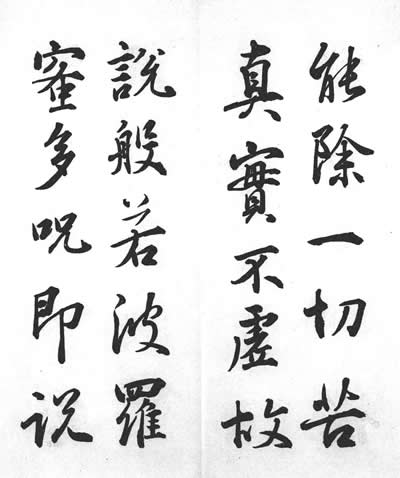 能除一切苦
真實不虛故
說般若波羅
蜜多呪即说